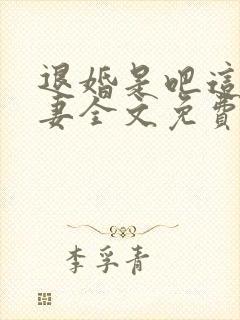 退婚是吧這
妻全文免費
李孚青